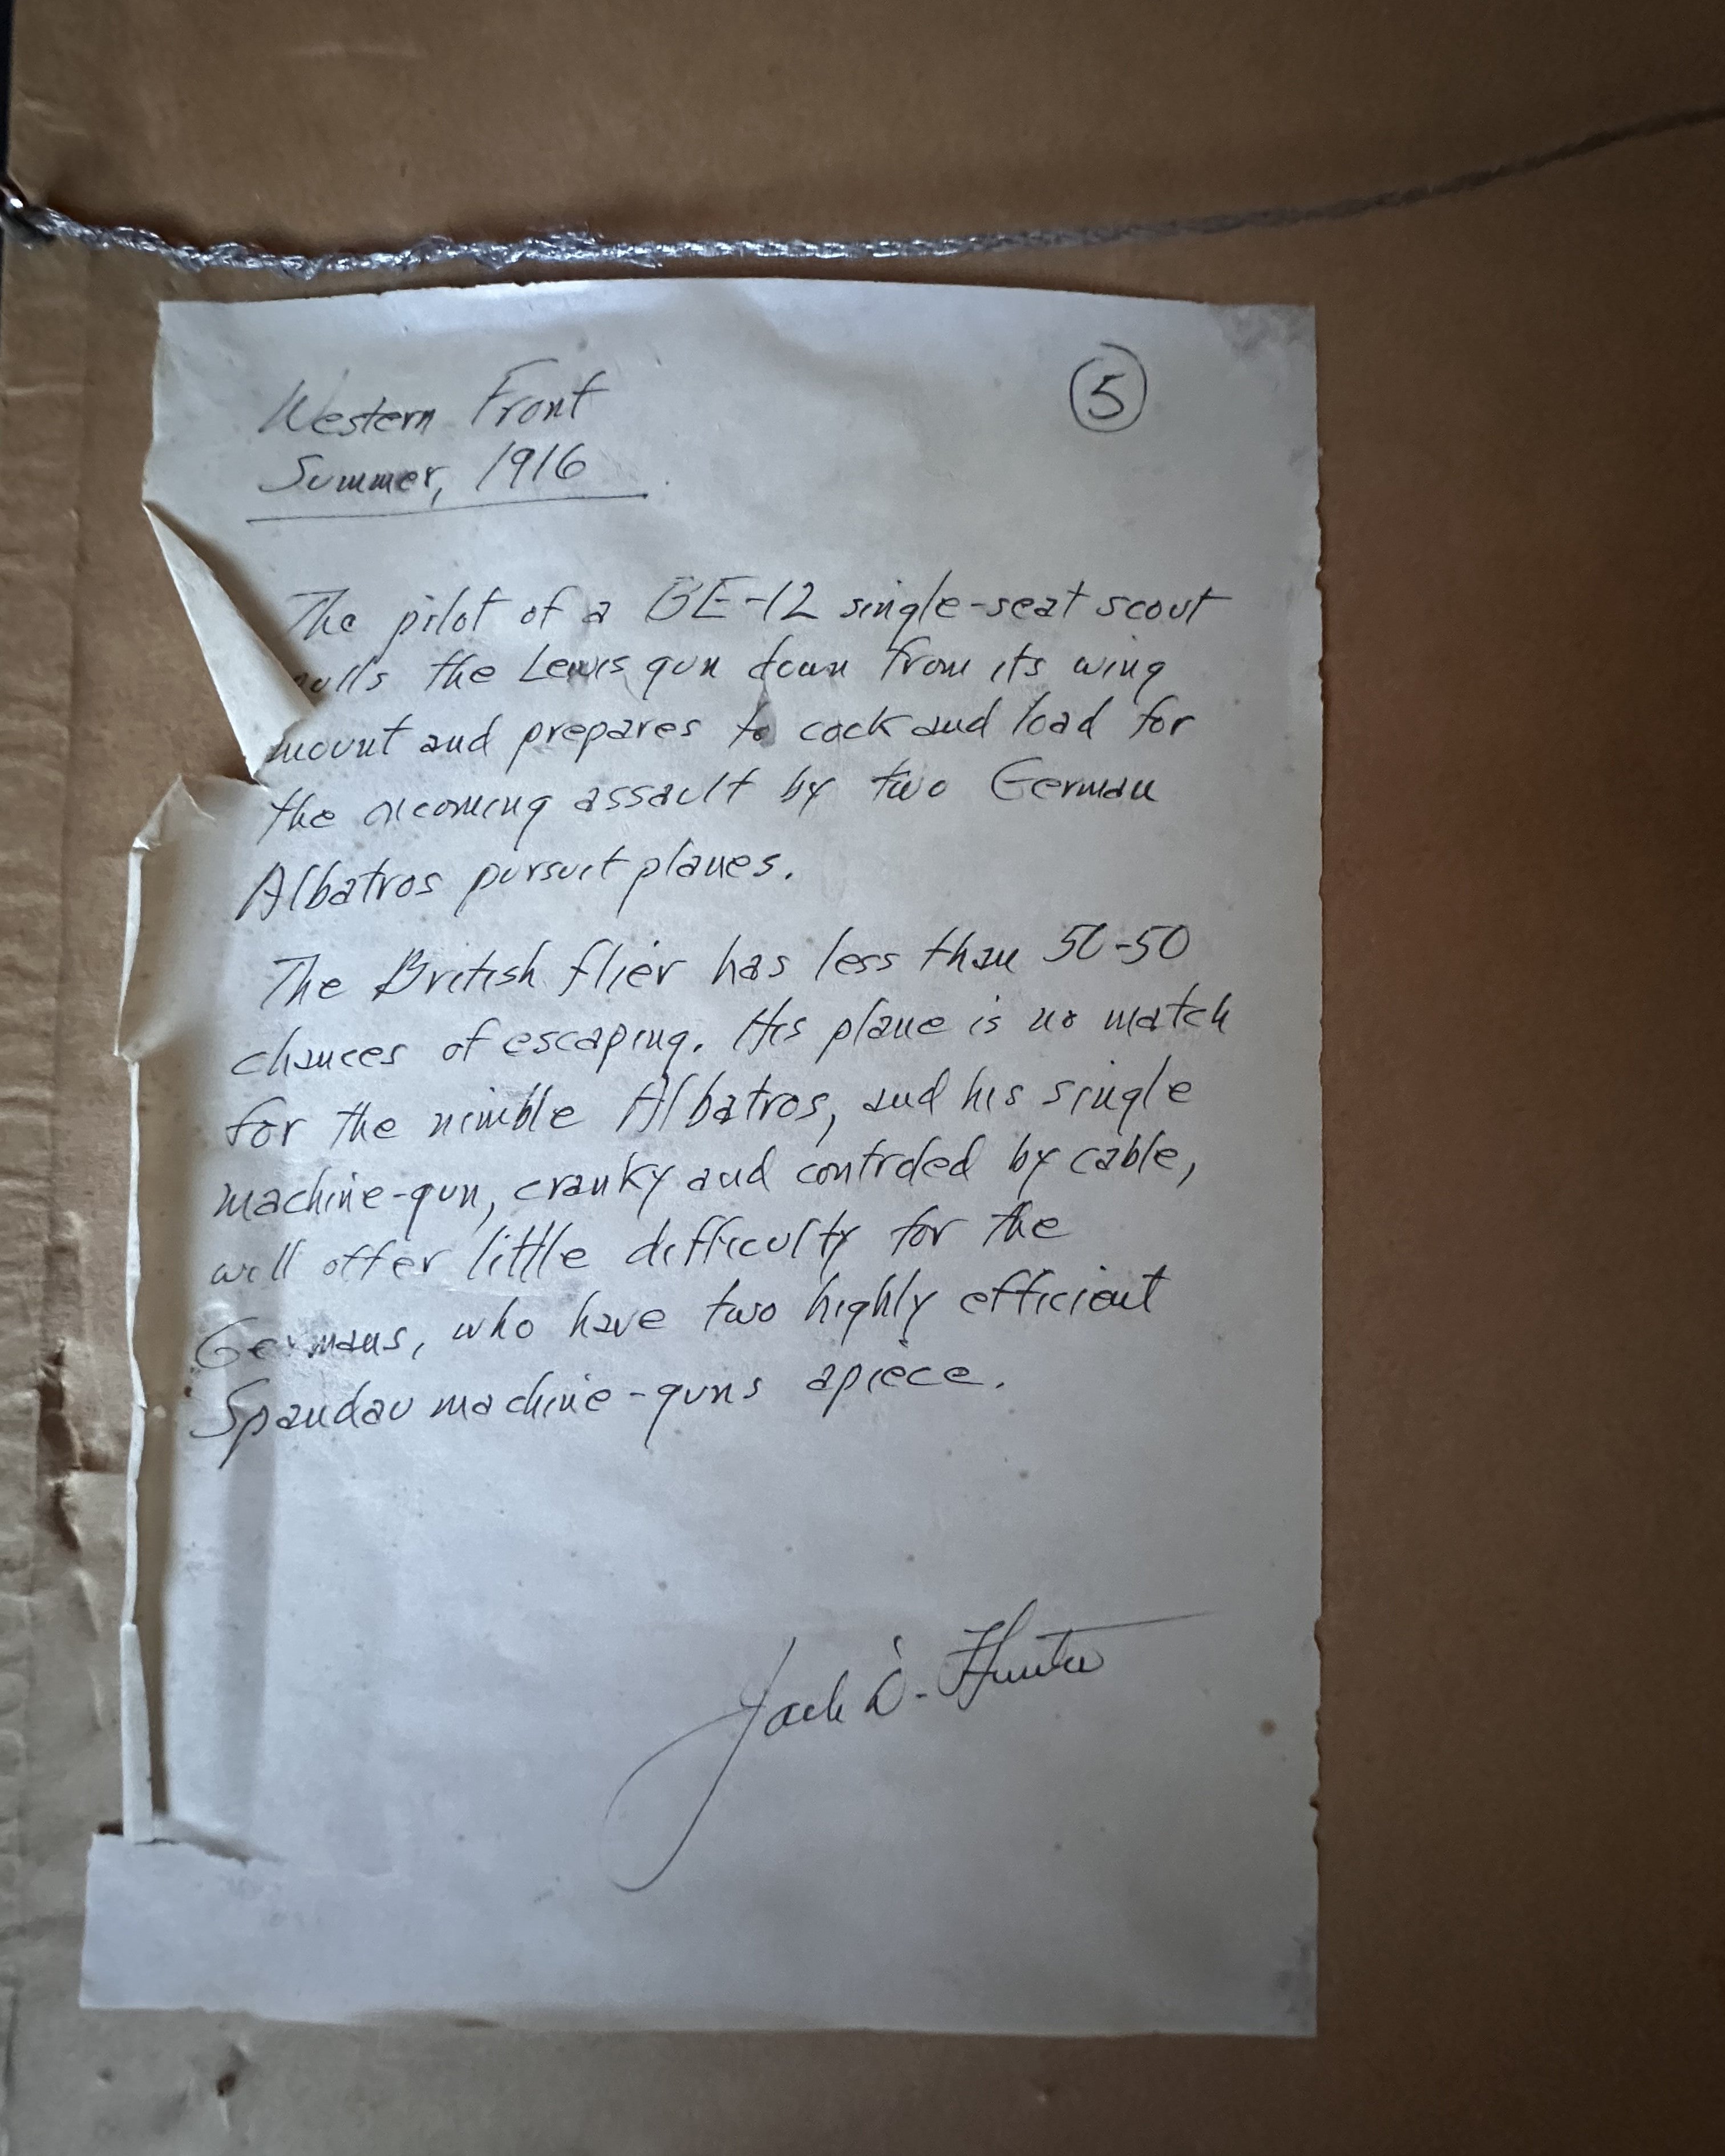 Western Front
Summer, 1916
5
The pilot of a BE-12 single-seat scout
pulls the Lewis gun down from its wing
mount and prepares to cock and load for
the oncoming assault by two German
Albatros pursuit planes.
The British flier has less than 50-50
chances of escaping. His plane is no match
for the nimble Albatros, and his single
machine-gun, cranky and controled by cable,
will offer little difficulty for the
Germans, who have two highly efficient
Spandau machine-guns apiece.
Jack D. Hunter